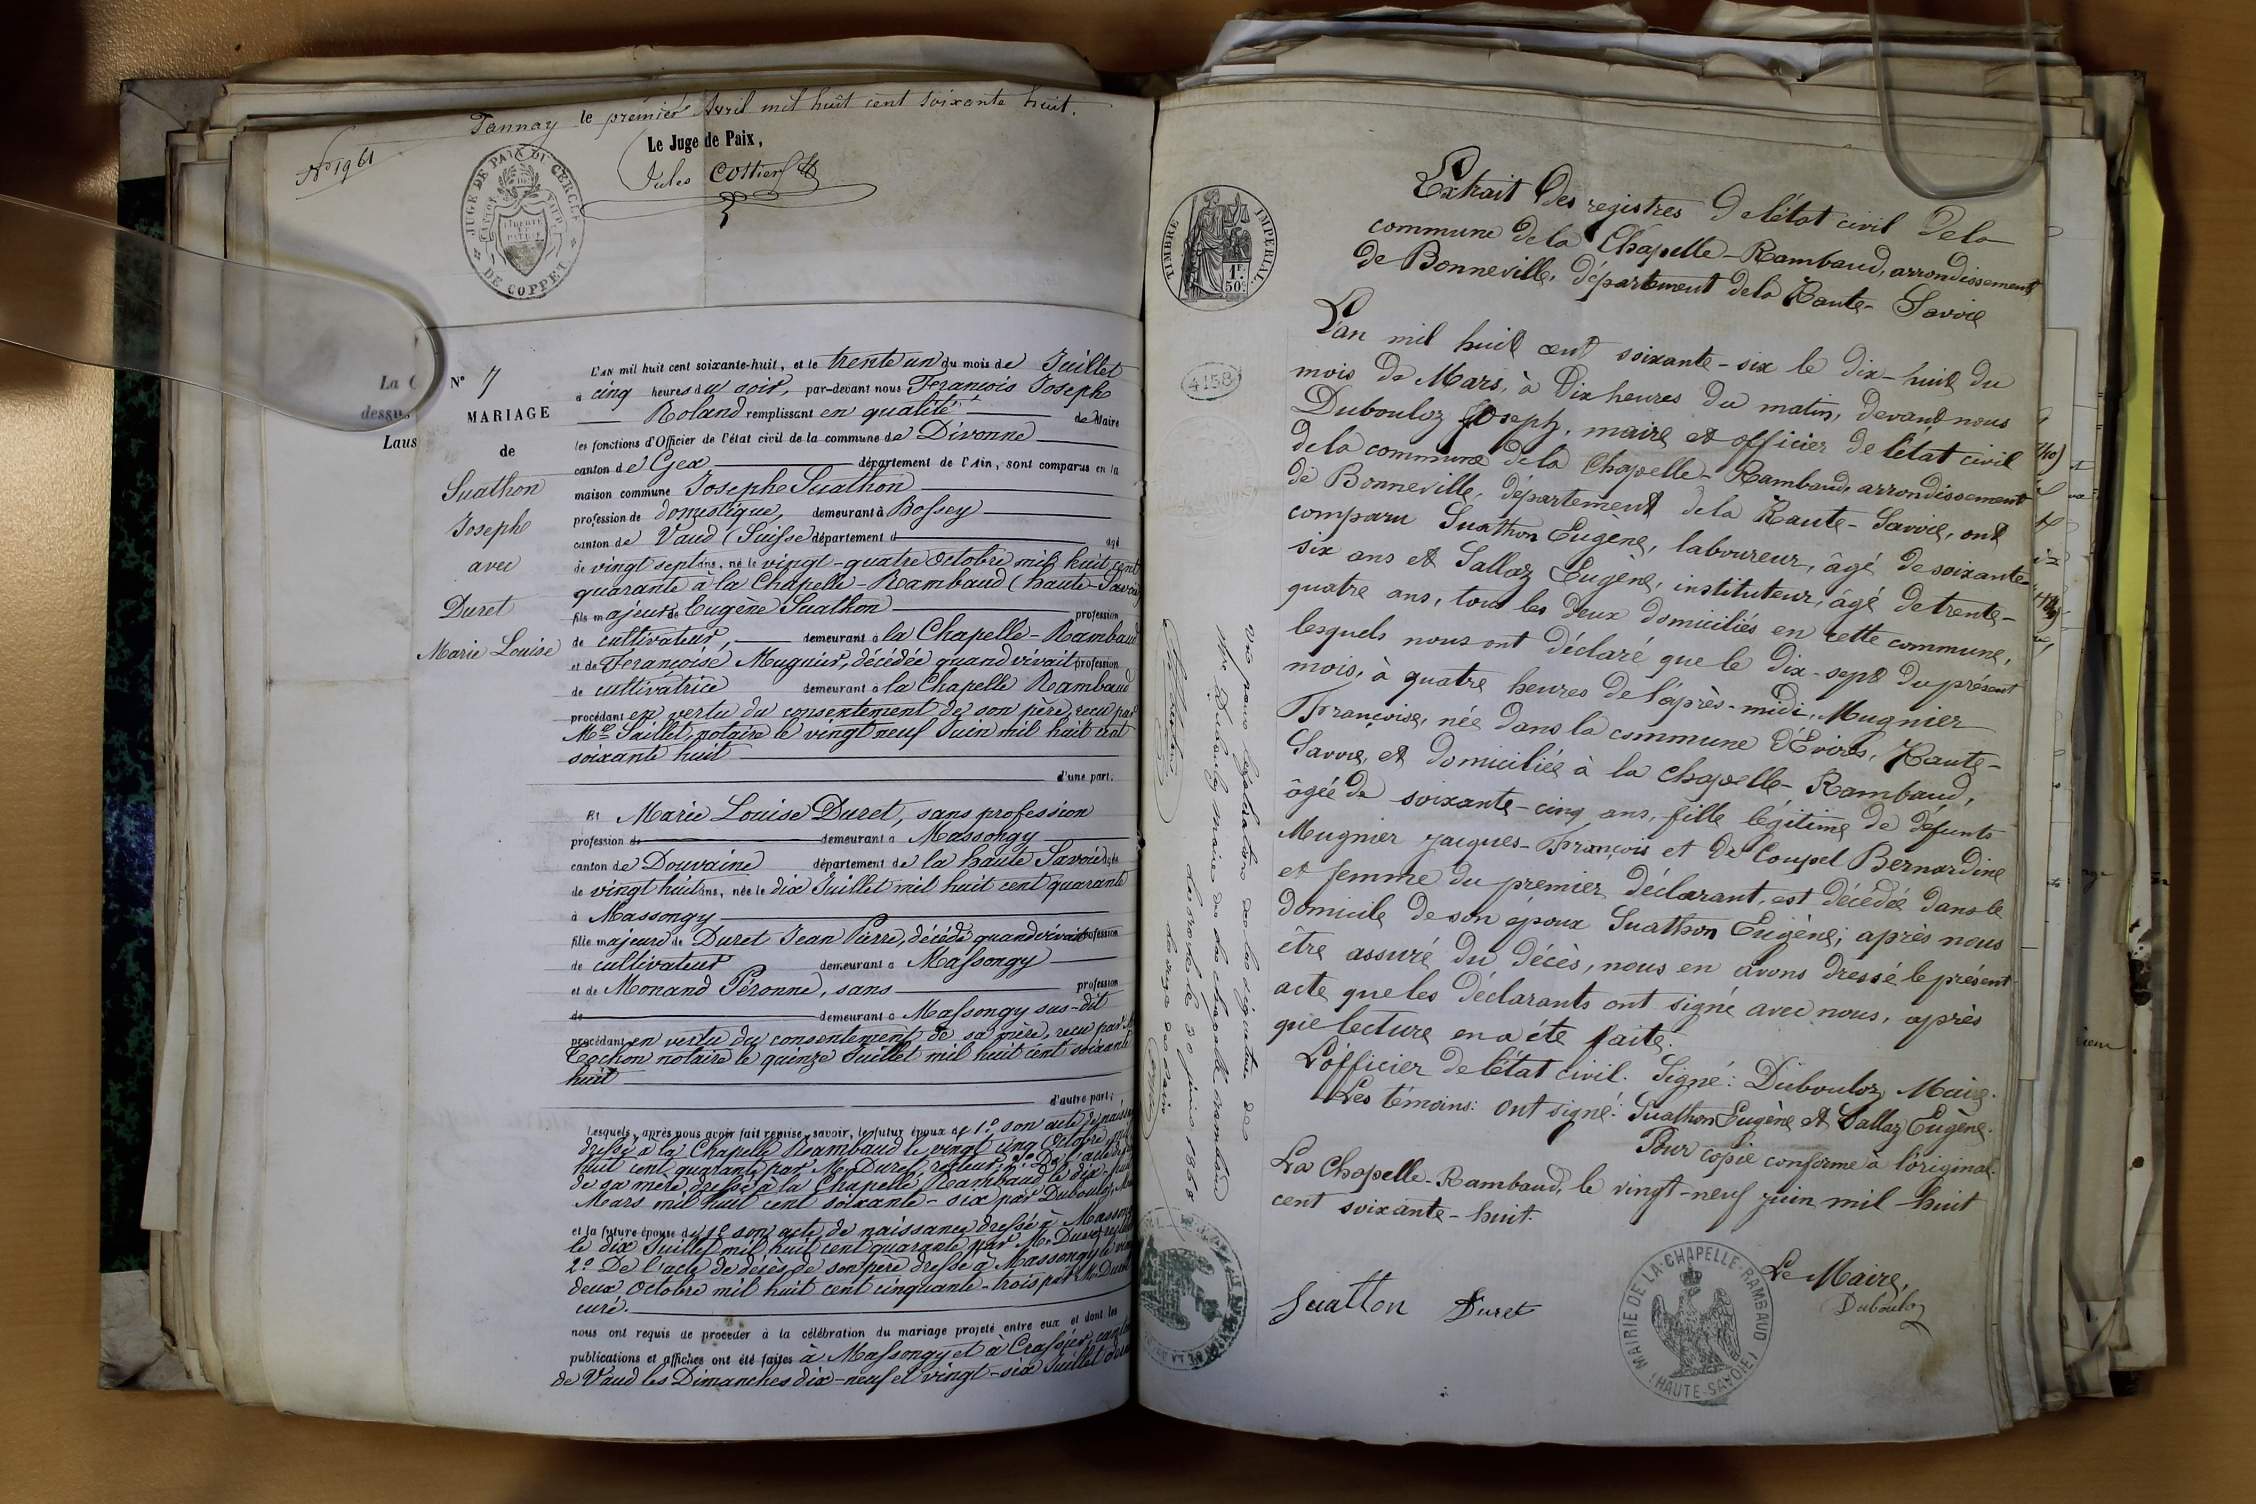 Tannay le premier Avril mil huit cent soixante huit.
Le Juge de Paix,
Nº 1961
Jules Cottier
JUGE DE PAIX DU CERCLE DE COPPET
CANTON DE VAUD
LIBERTÉ ET PATRIE
La C
dessus
Laus
Nº 7
MARIAGE
de
Suathon
Joseph
avec
Duret
Marie Louise
L'AN mil huit cent soixante-huit, et le trente un du mois de Juillet
à cinq heures du soir, par-devant nous François Joseph
Roland remplissant en qualité de Maire
les fonctions d'Officier de l'état civil de la commune de Divonne
canton de Gex département de l'Ain, sont comparus en la
maison commune Joseph Suathon
profession de domestique, demeurant à Bossey
canton de Vaud (Suisse département d âgé
de vingt sept ans, né le vingt-quatre Octobre mil huit cent
quarante à la Chapelle-Rambaud (haute Savoie)
fils majeur de Eugène Suathon profession
de cultivateur, demeurant à la Chapelle-Rambaud
et de Françoise Mugnier, décédée quand vivait profession
de cultivatrice demeurant à la Chapelle Rambaud
procédant en vertu du consentement de son père, reçu par
Me Saillet, notaire le vingt neuf Juin mil huit cent
soixante huit
d'une part.
Et Marie Louise Duret, sans profession
profession de demeurant à Massongy
canton de Douvaine département de la haute Savoie âgée
de vingt huit ans, née le dix Juillet mil huit cent quarante
à Massongy
fille majeure de Duret Jean Pierre, décédé quand vivait profession
de cultivateur demeurant à Massongy
et de Monand Péronne, sans profession
de demeurant à Massongy sus-dit
procédant en vertu du consentement de sa mère, reçu par M
Cochon notaire le quinze Juillet mil huit cent soixante
huit
d'autre part;
Lesquels, après nous avoir fait remise, savoir, le futur époux de 1º son acte de naissance
dressé à la Chapelle Rambaud le vingt cinq Octobre mil
huit cent quarante par Mr Duret, recteur, 2º De l'acte de décès
de sa mère dressé à la Chapelle Rambaud le dix-huit
Mars mil huit cent soixante-six par Dubouloz, Maire
et la future épouse de 1º son acte de naissance dressé à Massongy
le dix Juillet mil huit cent quarante par Mr Duret
2º De l'acte de décès de son père dressé à Massongy le vingt
deux Octobre mil huit cent cinquante-trois par Mr Duret
curé.
nous ont requis de procéder à la célébration du mariage projeté entre eux et dont les
publications et affiches ont été faites à Massongy et à Crassier, canton
de Vaud les Dimanches dix-neuf et vingt-six Juillet
TIMBRE IMPERIAL
1F.
50c.
4158
Extrait Des registres De l'état civil De la
commune de la Chapelle-Rambaud, arrondissement
de Bonneville, département de la Haute-Savoie
L'an mil huit cent soixante-six le dix-huit du
mois de Mars, à dix heures du matin, devant nous
Dubouloz Joseph, maire et officier de l'état civil
de la commune de la Chapelle-Rambaud, arrondissement
de Bonneville, département de la Haute-Savoie, ont
comparu Suathon Eugène, laboureur, âgé de soixante-
six ans et Sallaz Eugène, instituteur, âgé de trente-
quatre ans, tous les deux domiciliés en cette commune,
lesquels nous ont déclaré que le dix-sept du présent
mois, à quatre heures de l'après-midi, Mugnier
Françoise, née dans la commune d'Evires, Haute-
Savoie, et domiciliée à la Chapelle-Rambaud,
âgée de soixante-cinq ans, fille légitime de défunts
Mugnier Jacques-François et de Coupel Bernardine
et femme du premier déclarant, est décédée dans le
domicile de son époux Suathon Eugène; après nous
être assuré du décès, nous en avons dressé le présent
acte que les déclarants ont signé avec nous, après
que lecture en a été faite.
L'officier de l'état civil. Signé: Dubouloz, Maire.
Les témoins: ont signé: Suathon Eugène et Sallaz Eugène.
Pour copie conforme à l'original.
La Chapelle-Rambaud, le vingt-neuf juin mil huit
cent soixante-huit.
Le Maire,
Dubouloz
Suathon Duret
MAIRIE DE LA CHAPELLE-RAMBAUD
(HAUTE-SAVOIE)
Vu pour légalisation de la signature de
Mr Dubouloz maire de la chapelle rambaud
le 30 juin 1868